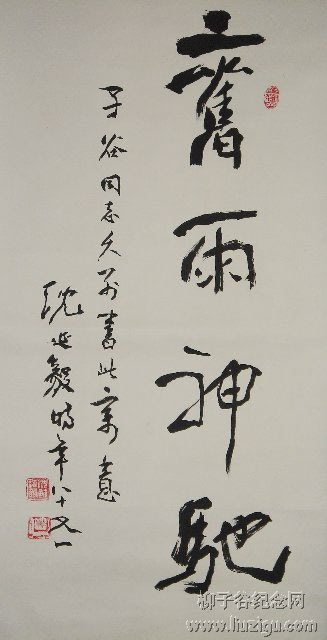 舊雨神馳
子谷同志久别書此寄意
沈延毅时年八十又一
柳子谷纪念网
www.liuzigu.com